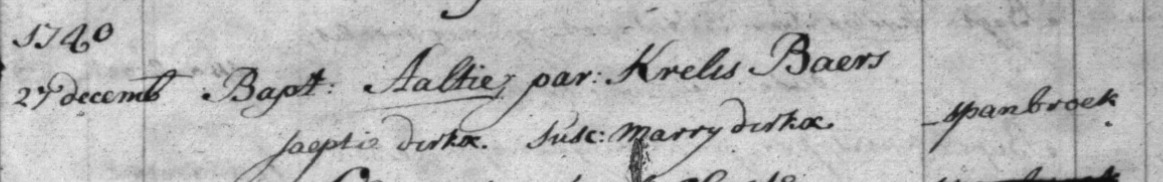 1740
27 decemb Bapt: Aaltie, par: Krelis Baers
Jaeptie dirkx. Susc: Marry dirkx. spanbroek.